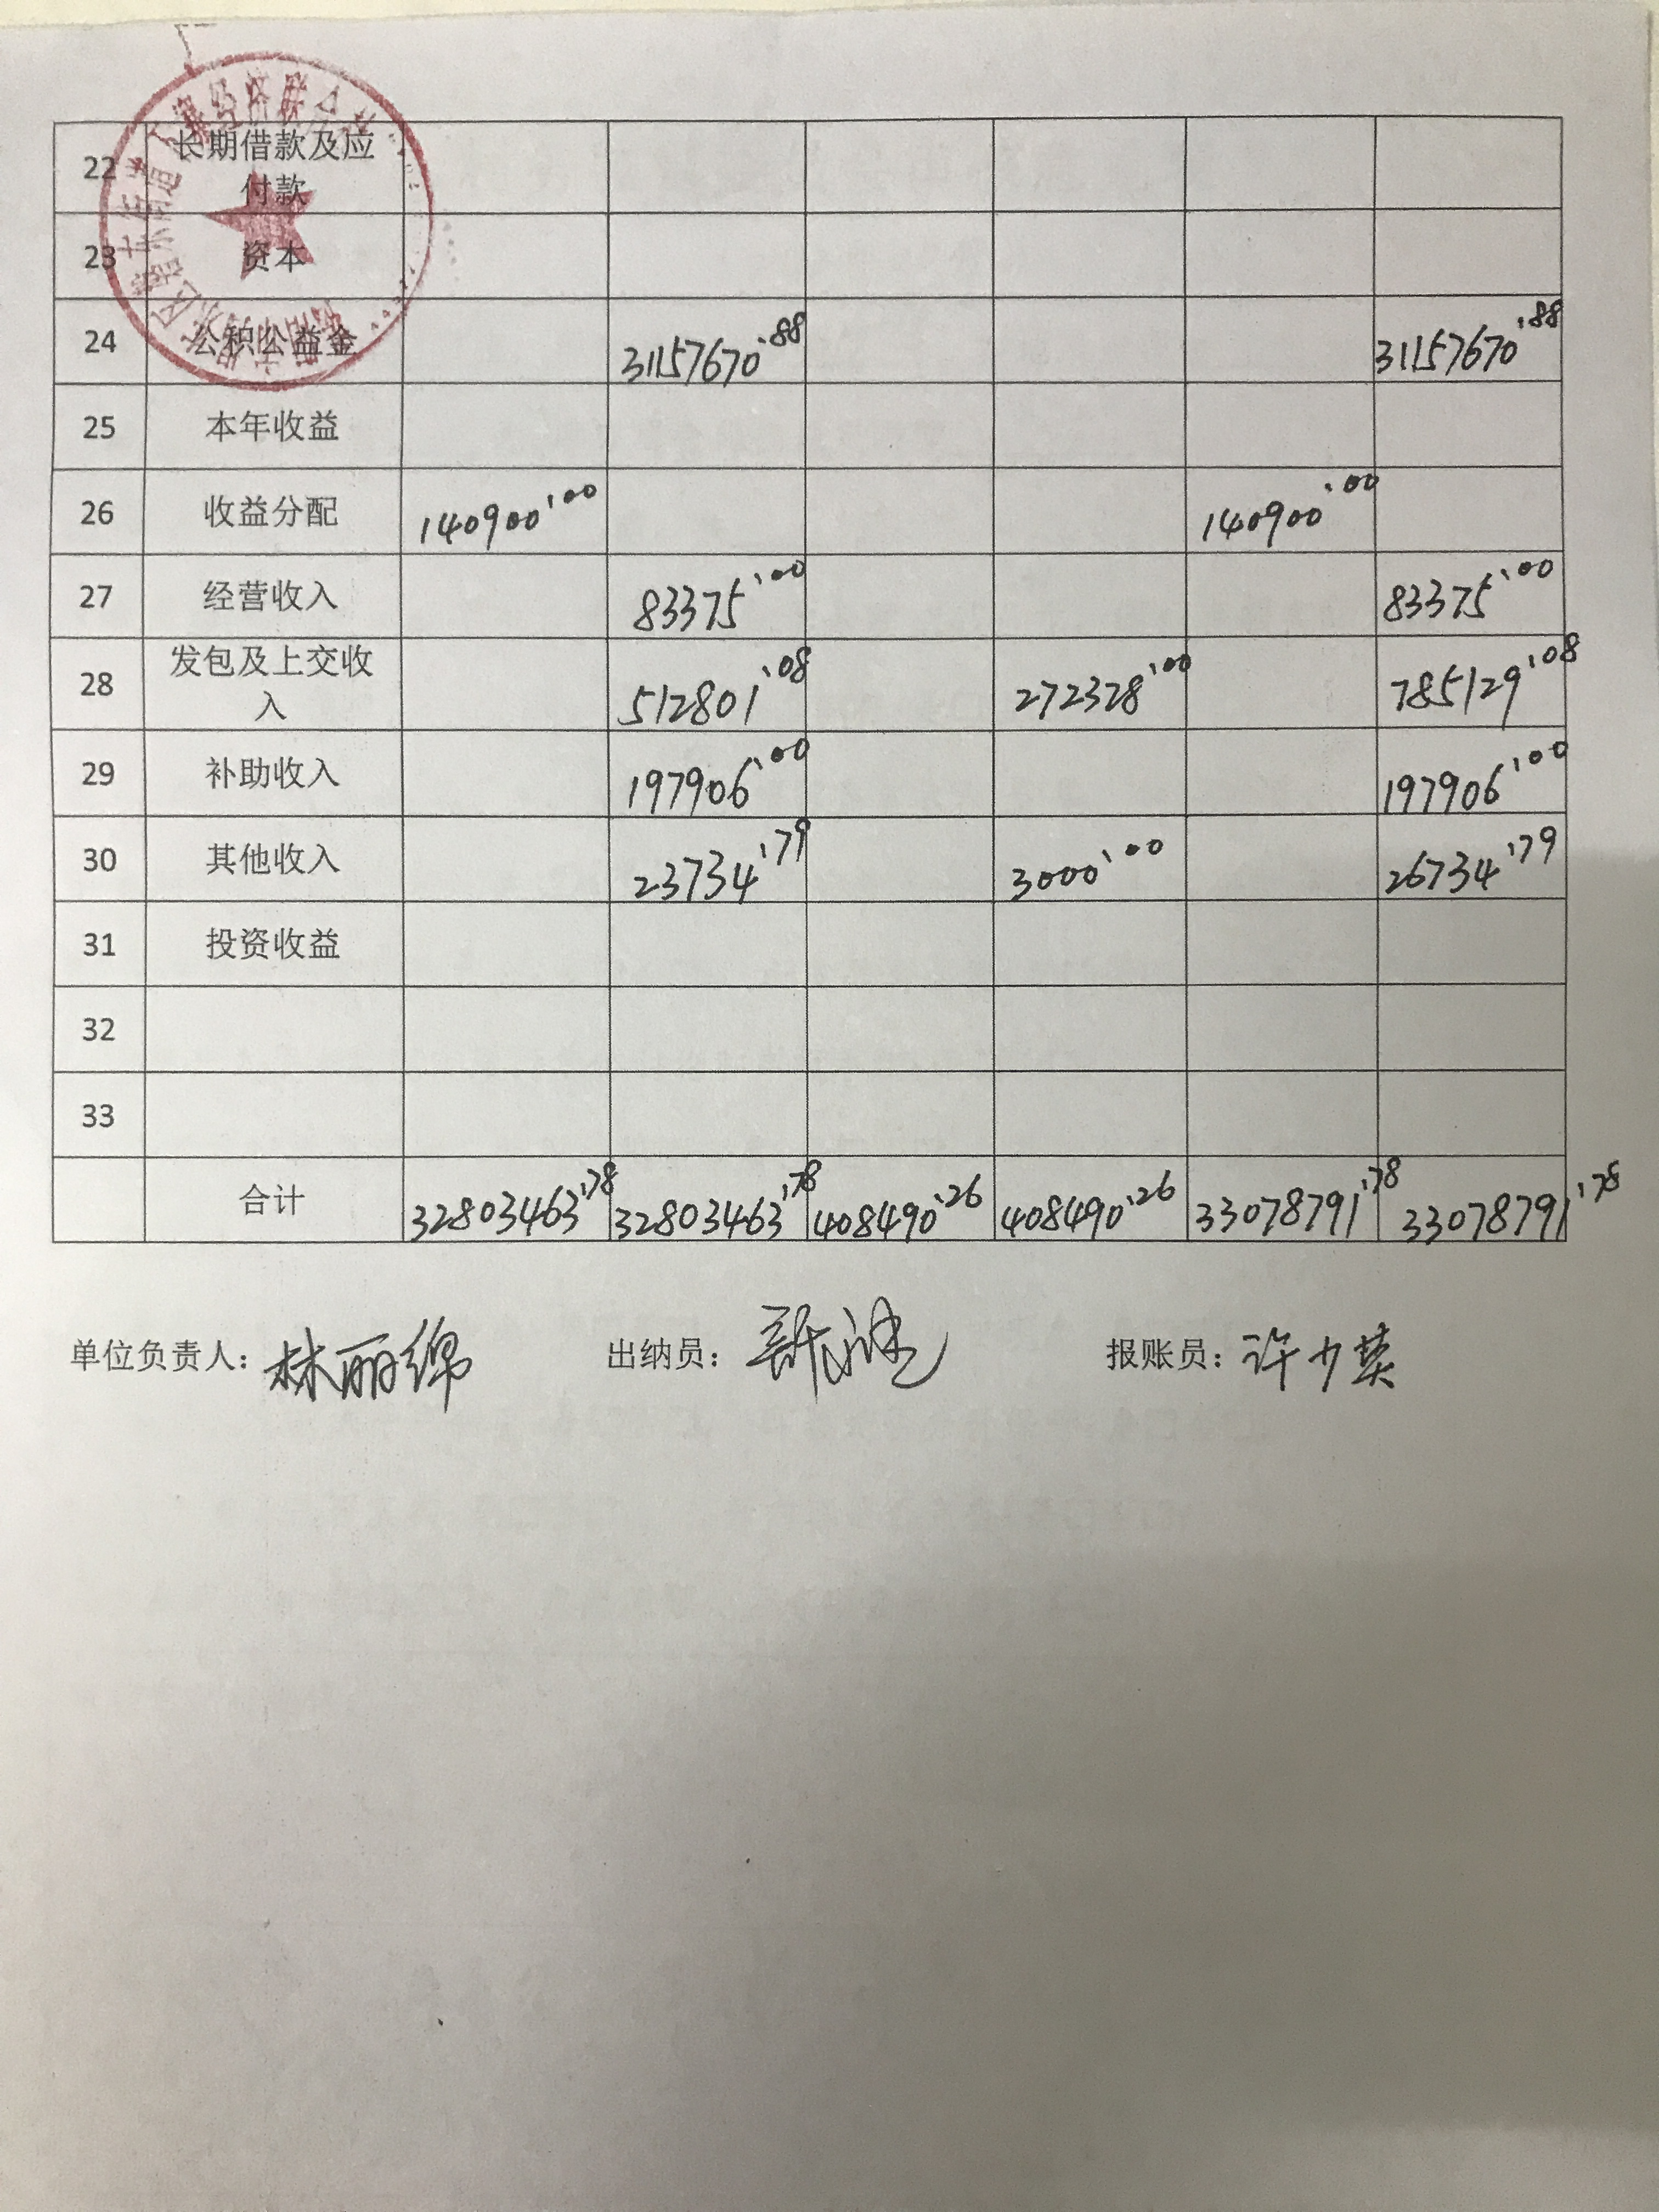 22 长期借款及应
付款
23 资本
24 公积公益金 31157670.88 31157670.88
25 本年收益
26 收益分配 140900.00 140900.00
27 经营收入 83375.00 83375.00
28 发包及上交收
入 512801.08 272328.00 785129.08
29 补助收入 197906.00 197906.00
30 其他收入 23734.79 3000.00 26734.79
31 投资收益
32
33
合计 32803463.78 32803463.78 408490.26 408490.26 33078791.78 33078791.78
单位负责人：林丽绵 出纳员： 报账员：许少英